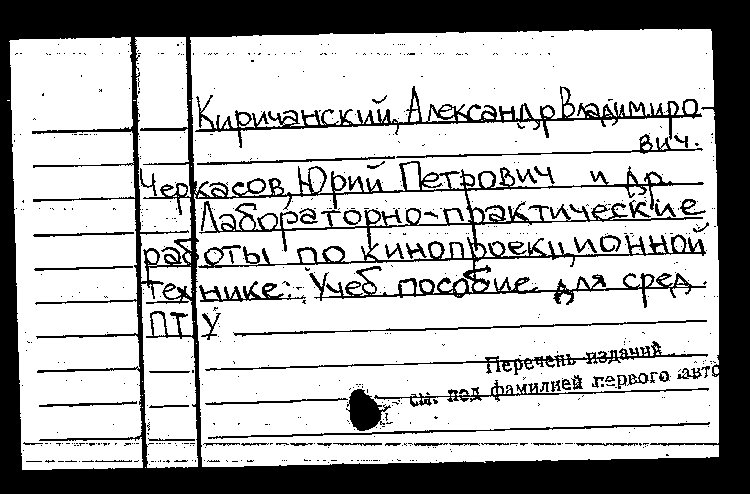 Киричанский, Александр Владимиро-
вич.
Черкасов, Юрий Петрович и др.
Лабораторно-практические
работы по кинопроекционной
технике: Учеб. пособие для сред
ПТУ
Перечень изданий
см. под фамилией первого авто